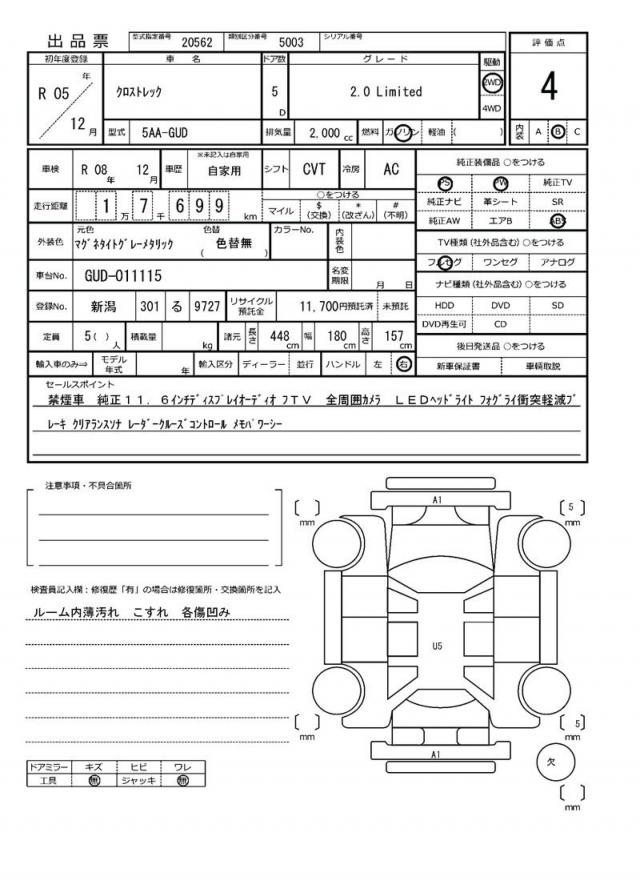 出品票 型式指定番号 20562 類別区分番号 5003 シリアル番号
評価点
初年度登録 車名 ドア数 グレード 駆動
R 05 年 12 月 クロストレック 5 D 2.0 Limited 2WD 4WD
4
型式 5AA-GUD 排気量 2,000 cc 燃料 ガソリン 軽油 ( ) 内装 A B C
車検 R 08 年 12 月 車歴 ※未記入は自家用 自家用 シフト CVT 冷房 AC
走行距離 1 万 7 千 6 9 9 km
○をつける
マイル $ (交換) * (改ざん) # (不明)
外装色 元色 マグネタイトグレーメタリック 色替 ( 色替無 ) カラーNo. 内装色
車台No. GUD-011115 名変期限 月 日
登録No. 新潟 301 る 9727 リサイクル預託金 11,700円預託済 未預託
定員 5( ) 人 積載量 kg 諸元 長さ 448 cm 幅 180 cm 高さ 157 cm
輸入車のみ⇒ モデル年式 年 輸入区分 ディーラー 並行 ハンドル 左 右
純正装備品 ○をつける
PS PW 純正TV
純正ナビ 革シート SR
純正AW エアB ABS
TV種類(社外品含む) ○をつける
フルセグ ワンセグ アナログ
ナビ種類(社外品含む) ○をつける
HDD DVD SD
DVD再生可 CD
後日発送品 ○をつける
新車保証書 車輌取説
セールスポイント
禁煙車 純正11.6インチディスプレイオーディオ フTV 全周囲カメラ LEDヘッドライト フォグライ衝突軽減ブ
レーキ クリアランスソナ レーダークルーズコントロール メモパワーシー
注意事項・不具合箇所
検査員記入欄:修復歴「有」の場合は修復箇所・交換箇所を記入
ルーム内薄汚れ こすれ 各傷凹み
ドアミラー キズ ヒビ ワレ
工具 無 ジャッキ 無
A1
[ ] mm
[ 5 ] mm
U5
[ ] mm
[ 5 ] mm
A1
欠
[ ] mm